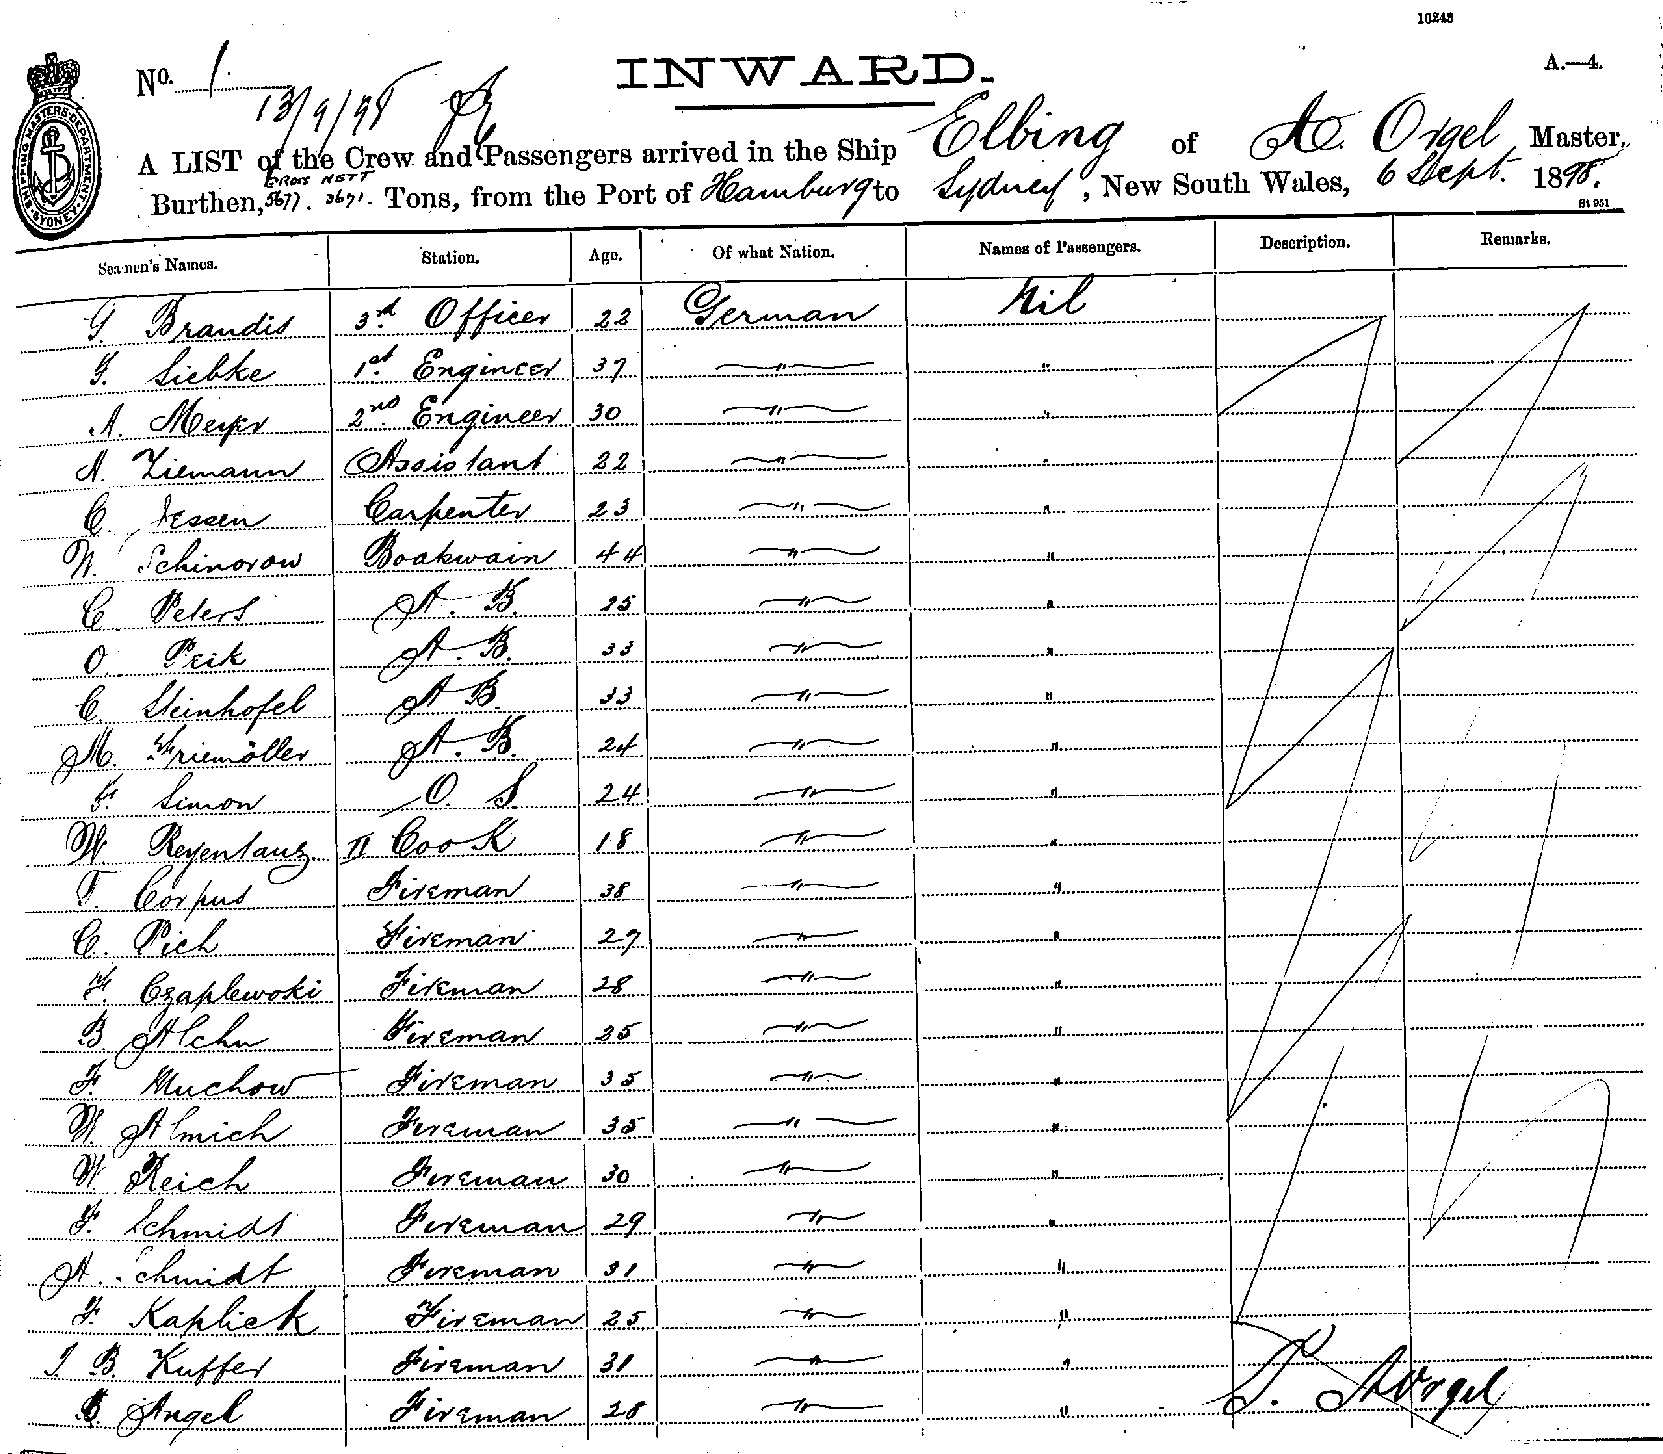 10243
No. 1.
INWARD.
A.—4.
13/9/98
SHIPPING MASTERS DEPARTMENT SYDNEY
A LIST of the Crew and Passengers arrived in the Ship Elbing of A. Orgel Master,
GROSS NETT
Burthen, 5677. 3671. Tons, from the Port of Hamburg to Sydney, New South Wales, 6 Sept. 1898.
St 951
Seamen's Names. Station. Age. Of what Nation. Names of Passengers. Description. Remarks.
G. Brandis 3rd Officer 22 German Nil
G. Siebke 1st Engineer 37 " "
A. Meyer 2nd Engineer 30 " "
A. Ziemann Assistant 22 " "
C. Jessen Carpenter 23 " "
W. Schinorow Boatswain 44 " "
C. Peters A. B. 25 " "
O. Peik A. B. 33 " "
C. Steinhofel A B. 33 " "
M. Friemöller A. B. 24 " "
F. Simon O. S 24 " "
W. Reyentanz II Cook 18 " "
T. Corpus Fireman 38 " "
C. Pich Fireman 27 " "
F. Czaplewski Fireman 28 " "
B. Alchn Fireman 25 " "
F. Muchow Fireman 35 " "
W Almich Fireman 35 " "
W Reich Fireman 30 " "
F. Schmidt Fireman 29 " "
A. Schmidt Fireman 31 " "
F. Kaplick Fireman 25 " "
J B. Kuffer Fireman 31 " "
B. Angel Fireman 28 " "
Orgel